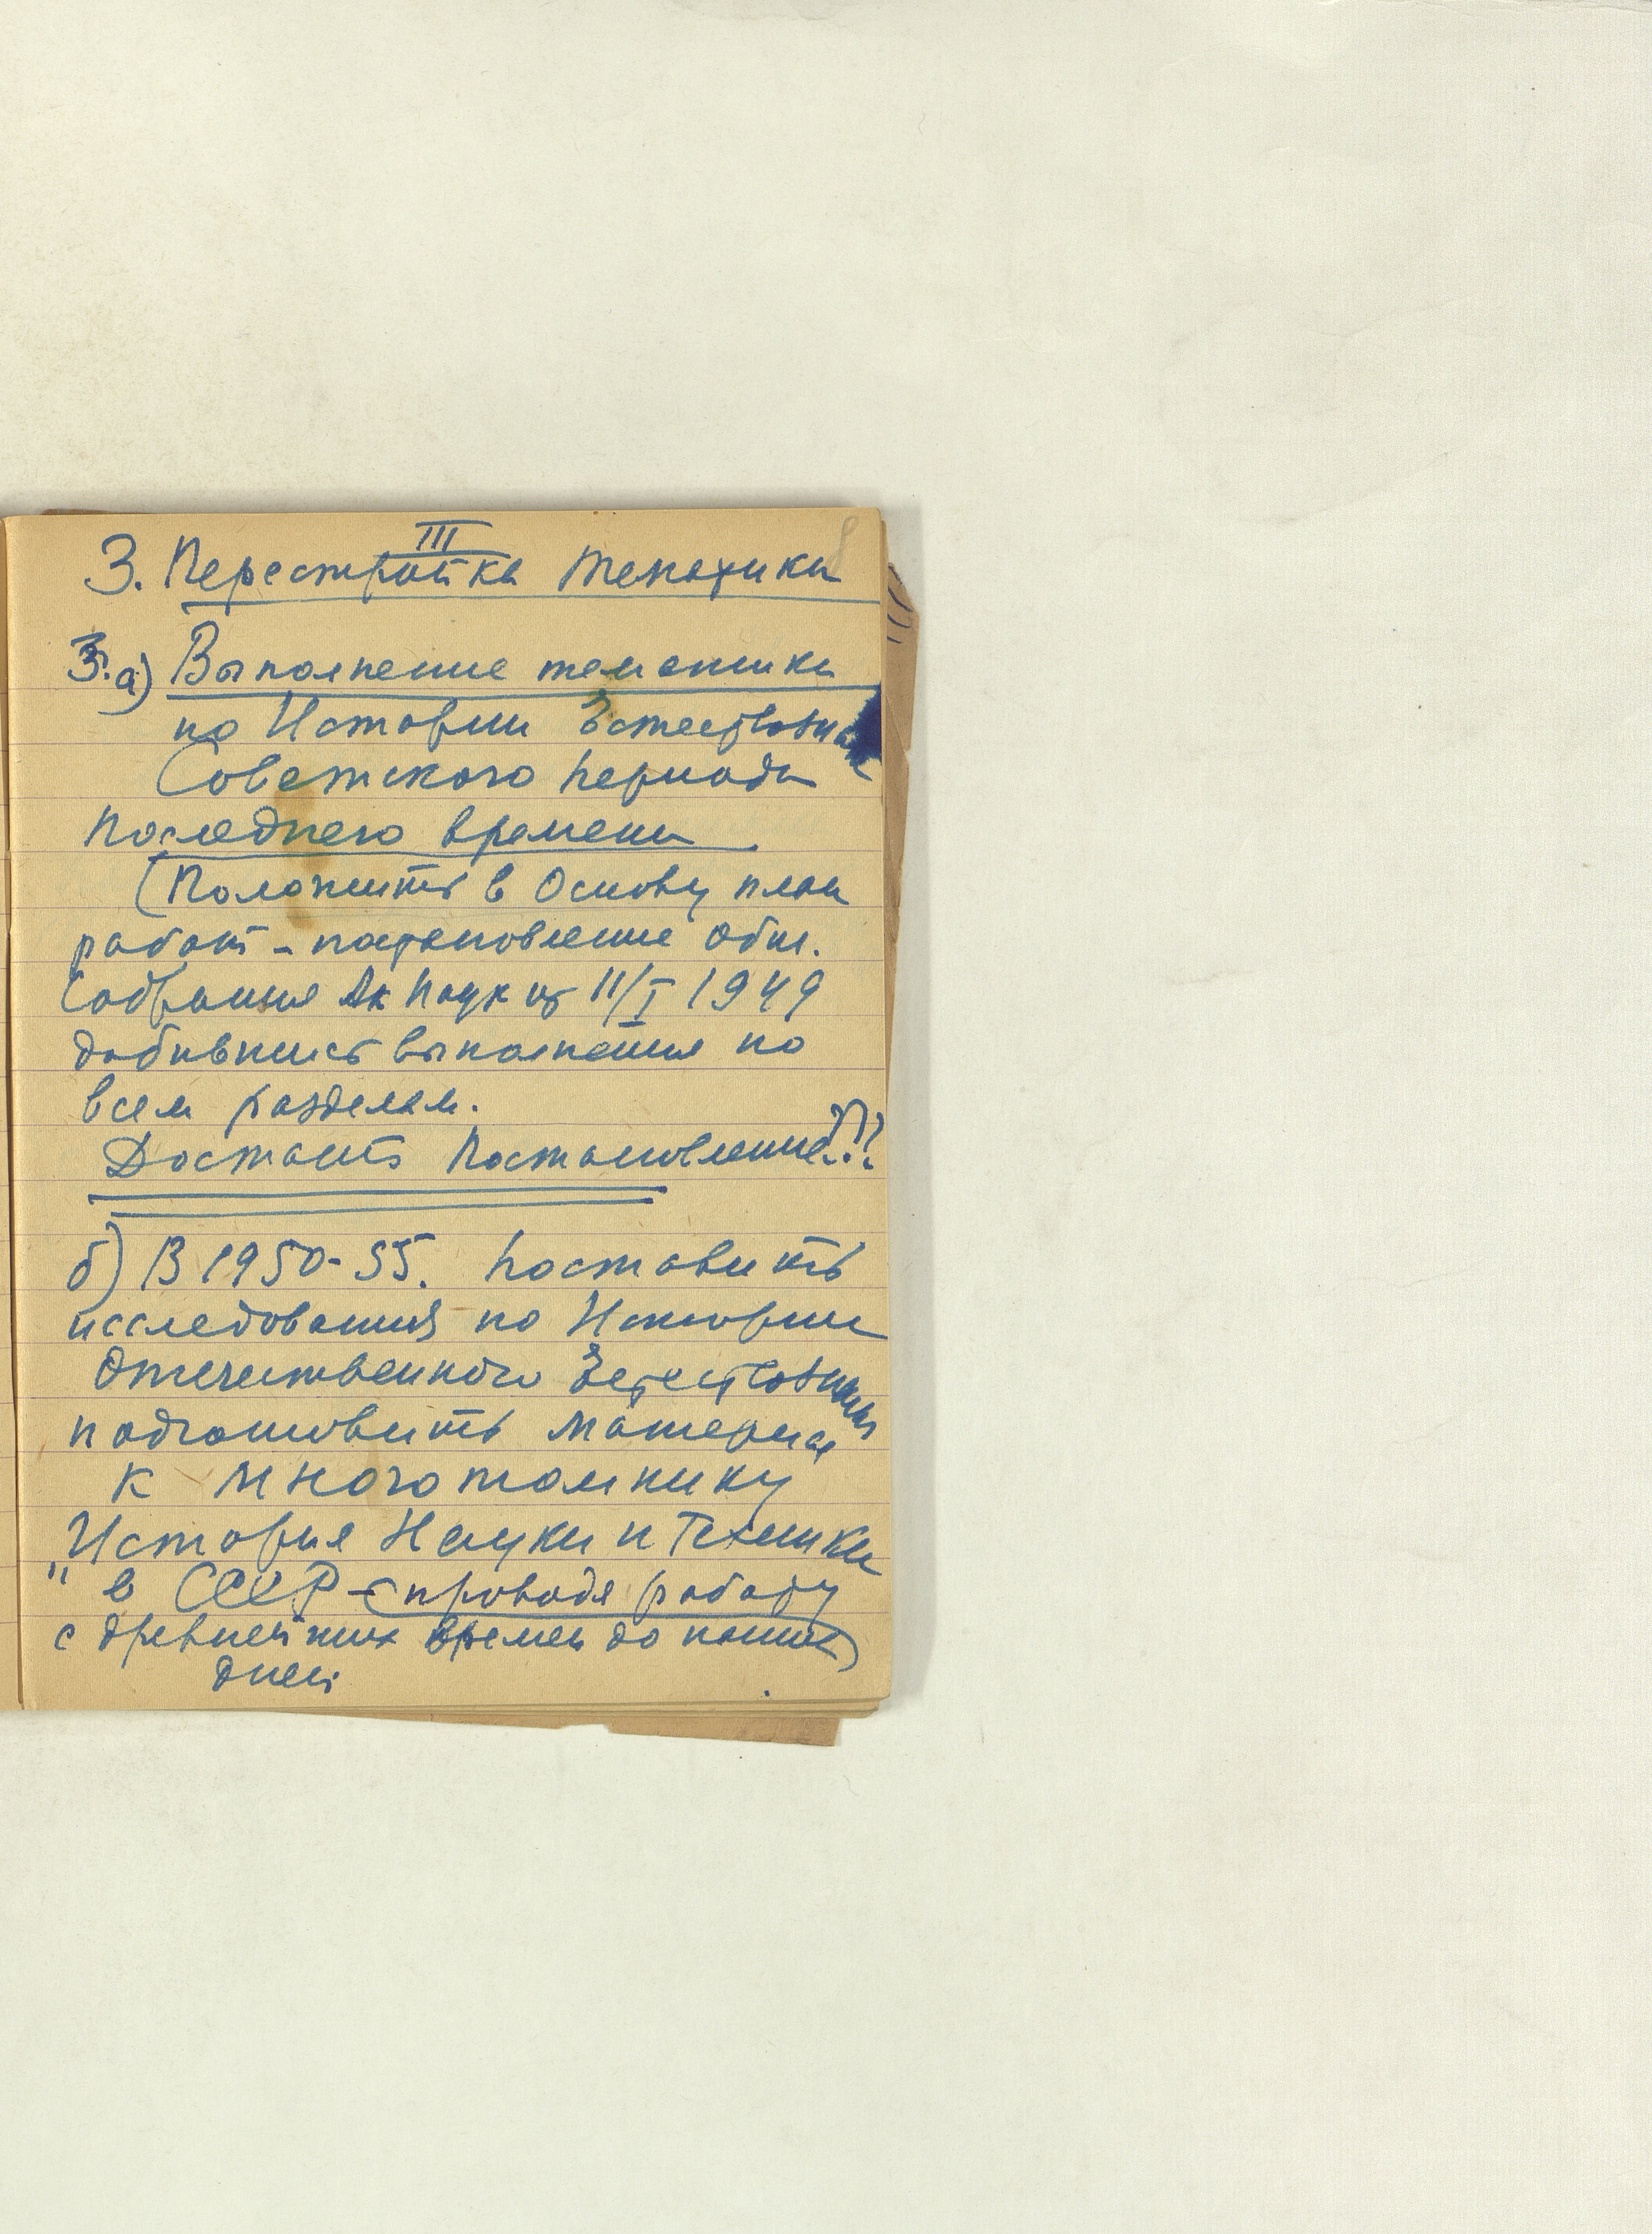 III
8
3. Перестройка тематики
3.а) Выполнение тематики
по Истории Естествознания
Советского периода
последнего времени
(Положить в Основу план
работ - постановление Общ.
Собрания Ак Наук от 11/I 1949
добившись выполнения по
всем разделам.
Достать Постановление???
б) В 1950-55. поставить
исследования по Истории
Отечественного Естествознания
подготовить материал
к многотомнику
"История Науки и Техники
" в СССР - (проводя работу
с древнейших времен до наших)
дней